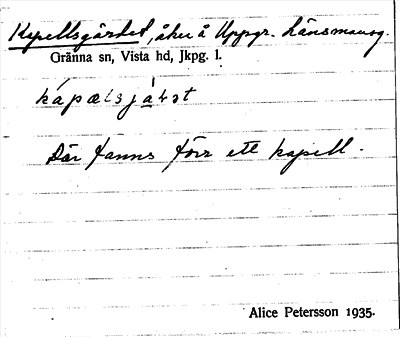 Kapellsgärdet, åker å Uppgr. Länsmansg.
Gränna sn, Vista hd, Jkpg. l.
Där fanns förr ett kapell.
Alice Petersson 1935.